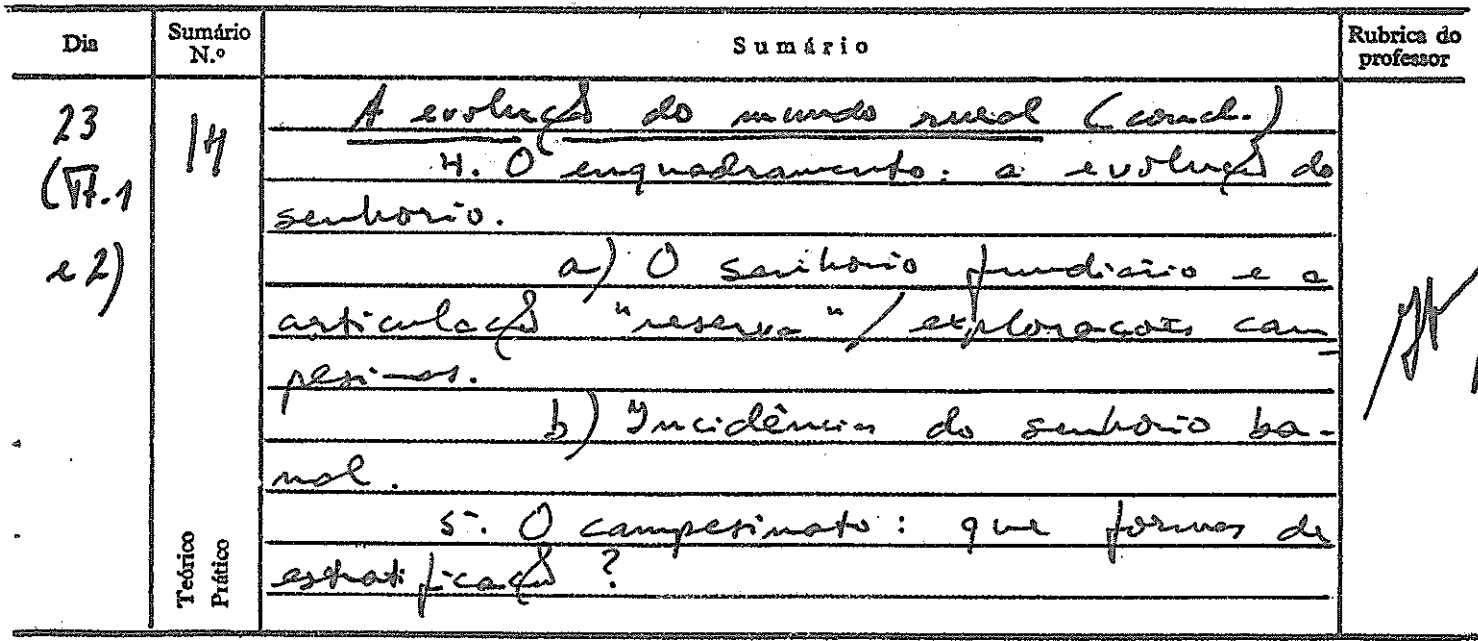 Dia
Sumário N.º
Sumário
Rubrica do professor
23
(TT.1
e 2)
14
A evolução do mundo rural (concl.)
4. O enquadramento: a evolução do
senhorio.
a) O senhorio fundiário e a
articulação "reserva" / explorações cam-
pesinas.
b) Incidências do senhorio ba-
nal.
5. O campesinato: que formas de
estratificação?
Teórico
Prático